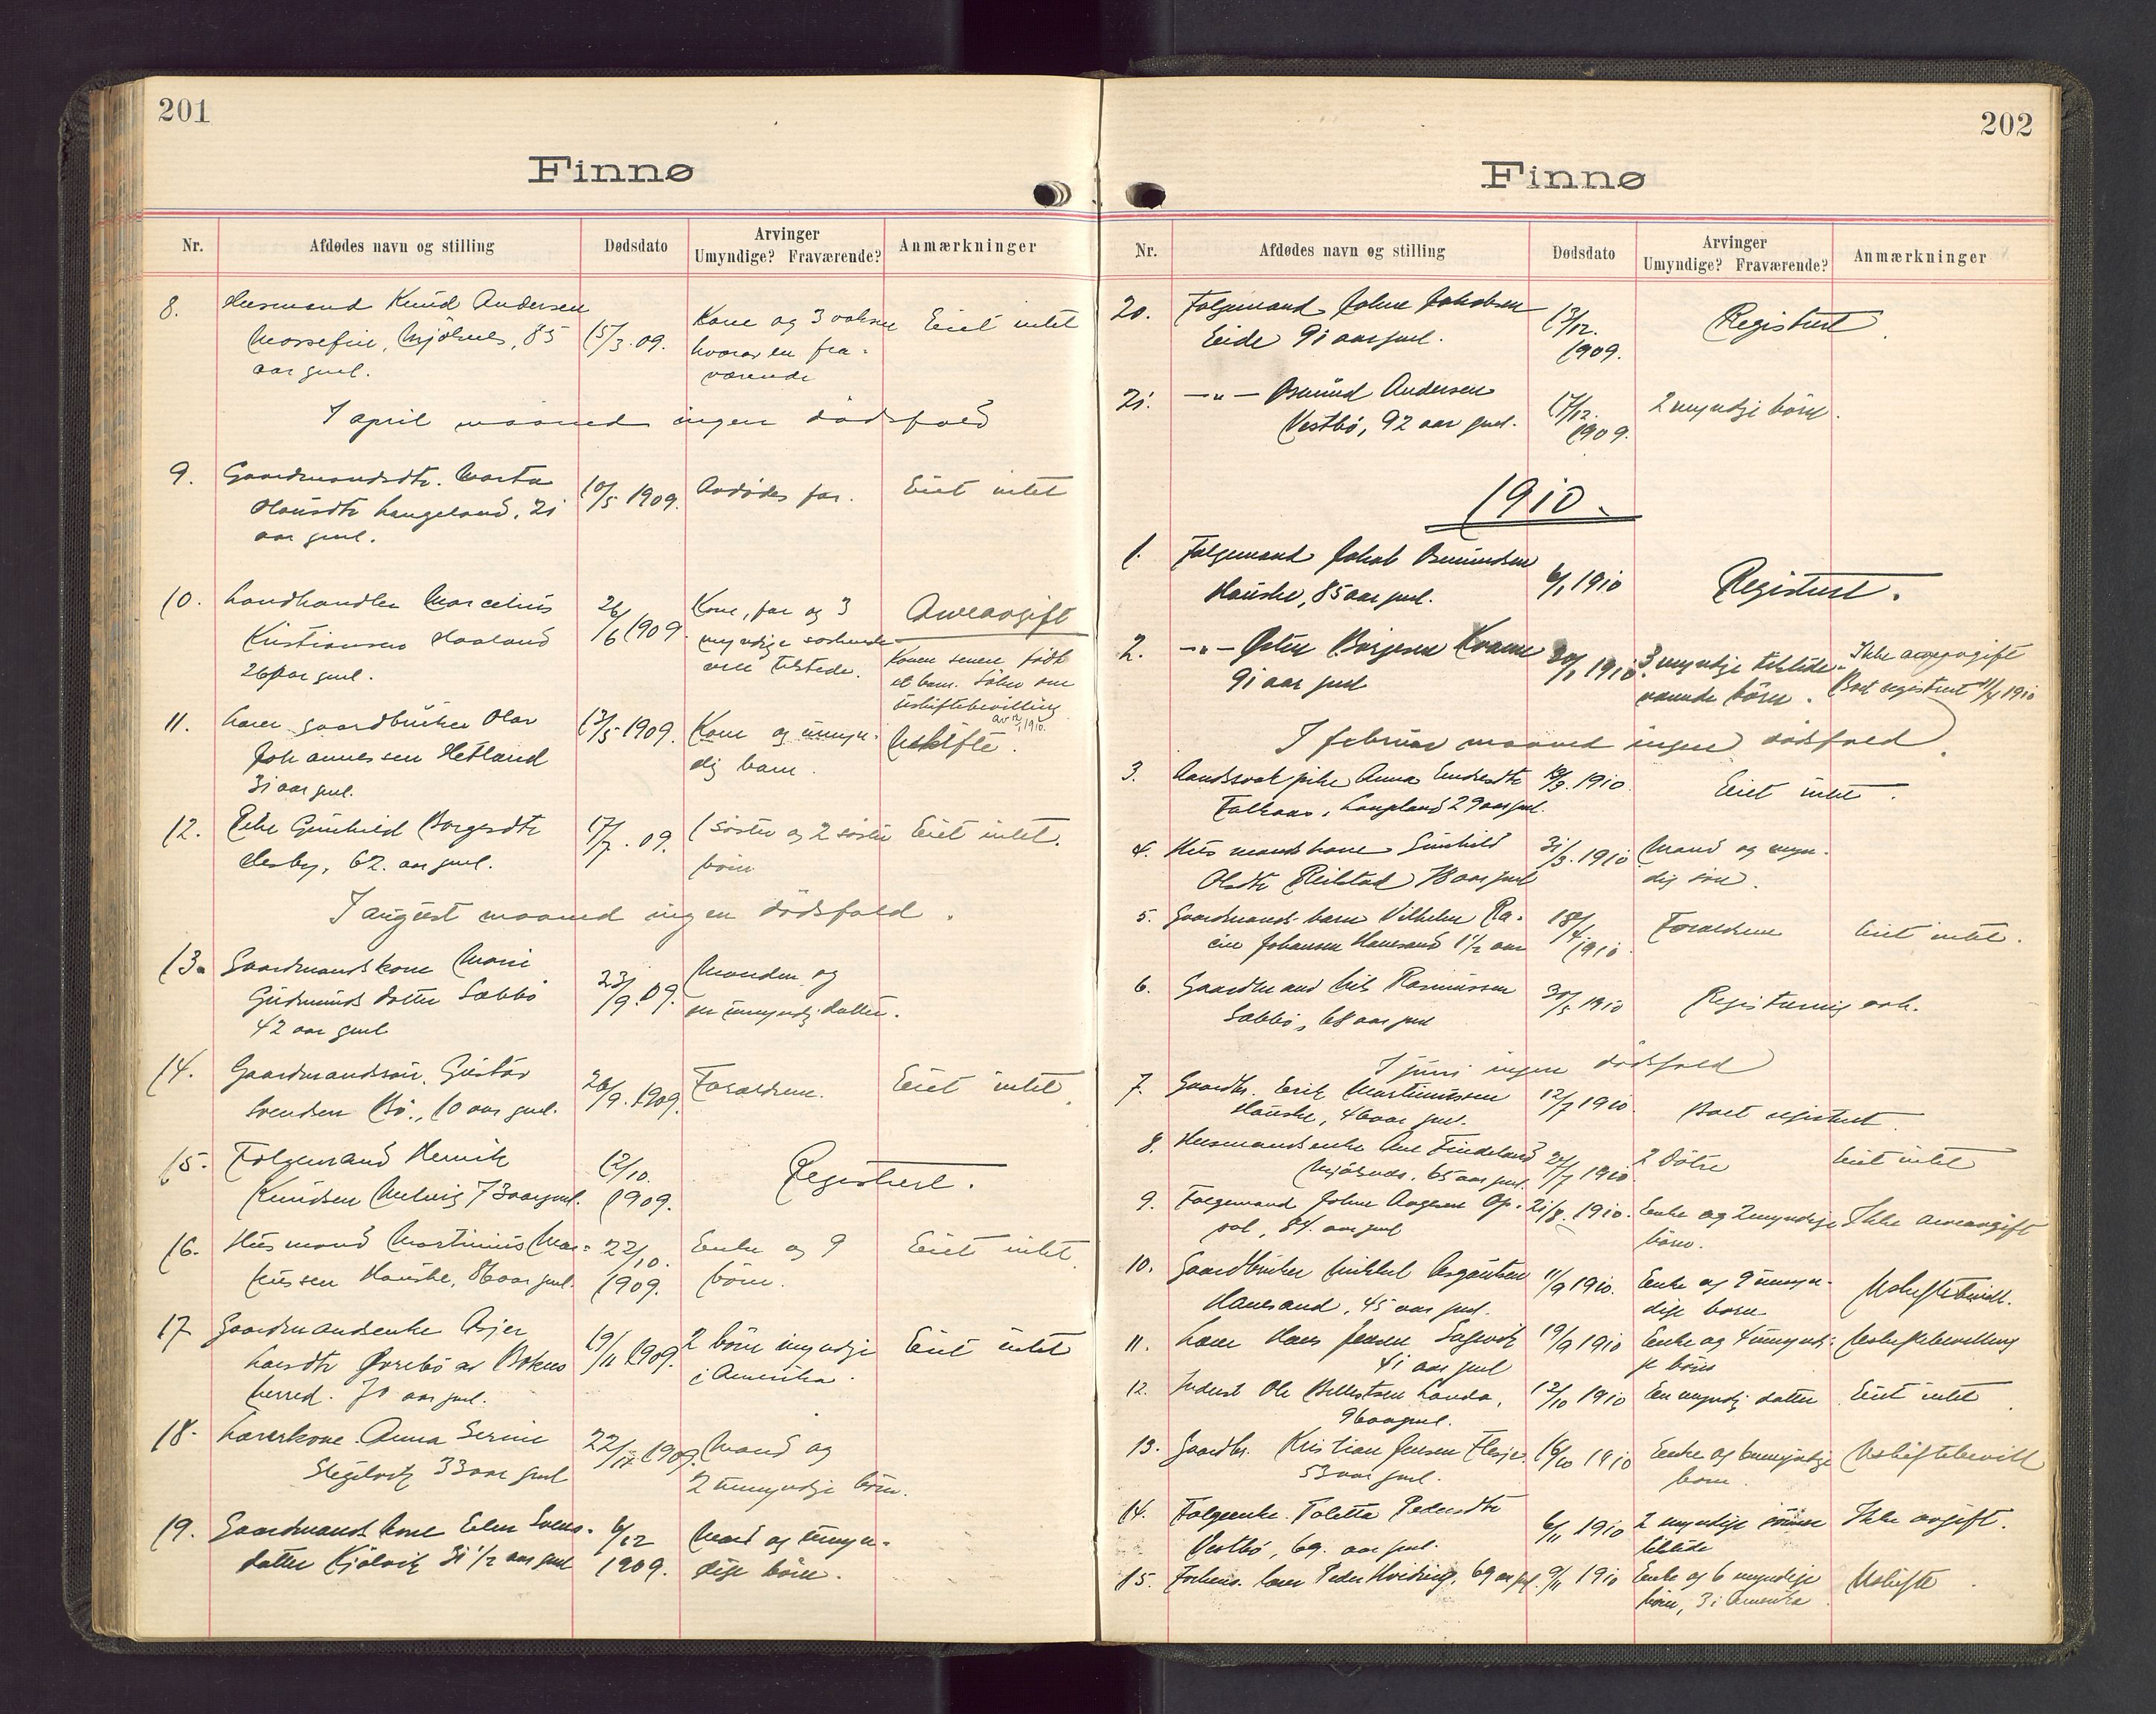 201
Finnø
Nr. Afdødes navn og stilling Dødsdato Arvinger Umyndige? Fraværende? Anmærkninger
8. Husmand Knud Andersen 15/3.09. Kone og 3 voksne Eiet intet
Mossefin, Mjølsnes, 85 hvorav en fra-
aar gml. værende
I april maaned ingen dødsfald
9. Gaardmandsdtr. Marta 10/5 1909. Avdødes far. Eiet intet
Olausdtr Langeland, 21
aar gml.
10. Landhandler Marcelius 26/6 1909 Kone, far og 3 Arveavgift
Kristiansen Haaland myndige søskende Konen senere født
26 aar gml. alle tilstede. et barn. Søker om
uskiftebevilling
av 1910.
11. Lærer, gaardbruker Olav 13/5 1909. Kone og umyn- Uskifte.
Johannessen Hetland dig barn.
31 aar gml.
12. Pike Gunhild Borgesdtr 17/7.09. 1 søster og 2 søster Eiet intet.
Hesby, 62. aar gml. børn
I august maaned ingen dødsfald.
13. Gaardmandskone Marie 23/9.09. Manden og
Gudmunds datter Sæbbø en umyndig datter.
42 aar gml
14. Gaardmandssøn. Gustav 26/9.1909. Forældrene. Eiet intet.
Svendsen Bø., 10 aar gml.
15. Folgemand Henrik 12/10. Registrert.
Knudsen Melvig 73 aar gml. 1909.
16. Husmand Martinius Mar- 22/10. Enke og 9 Eiet intet.
kussen Hauske, 86 aar gml. 1909. børn.
17 Gaardmandsenke Asjer 19/11 1909. 2 børn myndige Eiet intet
Larsdtr Øvrebø av Bokns i Amerika.
herred. 70 aar gml.
18. Lærerkone. Anna Serine 22/11 1909. Mand og
Skjelvik 33 aar gml 2 umyndige børn.
19. Gaardmands kone Elen Svens- 6/12 Mand og umyn-
datter Kjølvik 31 1/2 aar gml 1909. dige børn.
202
Finnø
Nr. Afdødes navn og stilling Dødsdato Arvinger Umyndige? Fraværende? Anmærkninger
20. Folgemand Johne Jakobsen 13/12. Registrert.
Eide 91 aar gml. 1909.
21. —"— Osmund Andersen 17/12. 2 myndige børn.
Vestbø, 92 aar gml. 1909.
1910.
1. Folgemand Jakob Osmundsen 6/1 1910 Registrert.
Hauske, 85 aar gml.
2. —"— Østen Børjesen Kvame 30/1 1910. 3 myndige tilstede- Ikke arveavgift
91 aar gml værende børn. Boet registrert 11/4 1910
I februar maaned ingen dødsfald.
3. Aandssvak pike Anna Endresdtr 18/3.1910. Eiet intet.
Langeland 29 aar gml.
4. Husmandskone Gunhild 31/3.1910. Mand og myn-
Olsdtr Reilstad 78 aar gml dig søn.
5. Gaardmands barn Vilhelm Ra- 18/4. Forældrene Eiet intet.
Johansen Hanesand 1 1/2 aar 1910.
6. Gaardmand Nils Rasmussen 30/5 1910 Registrering avh.
Sæbbø, 68 aar gml
I juni ingen dødsfald
7. Gaardbr. Erik Martinussen 12/7 1910. Boet registrert.
Hauske, 46 aar gml.
8. Husmandsenke Ane Findeland 27/7 1910. 2 døtre Eiet intet
Mjølsnes. 65 aar gml.
9. Folgemand Johne Aagesen Op- 21/8. 1910. Enke og 2 myndige Ikke arveavgift
sal, 84. aar gml børn.
10. Gaardbruker Mikkel Asgautsen 11/9 1910. Enke og 9 umyn- Uskiftebevill.
Hanesand, 45 aar gml. dige børn
11. Lærer Hans Jensen 19/9 1910 Enke og 4 umyndi- Uskiftebevilling
41 aar gml ge børn
12. Inderst Ole Landa, 12/10 1910 En myndig datter Eiet intet.
96 aar gml.
13. Gaardbr. Kristian Jensen Flesje. 16/10 1910 Enke og 6 umyndige Uskiftebevill
53 aar gml. børn.
14. Folgeenke. Toletta Pedersdtr 6/11 1910 2 myndige sønner Ikke avgift.
Vestbø, 69. aar gml. tilstede
15. Forhenv. lærer Peder Hvidning, 69 aar gml. 9/11 1910 Enke og 6 myndige Uskifte.
børn, 3 i Amerika